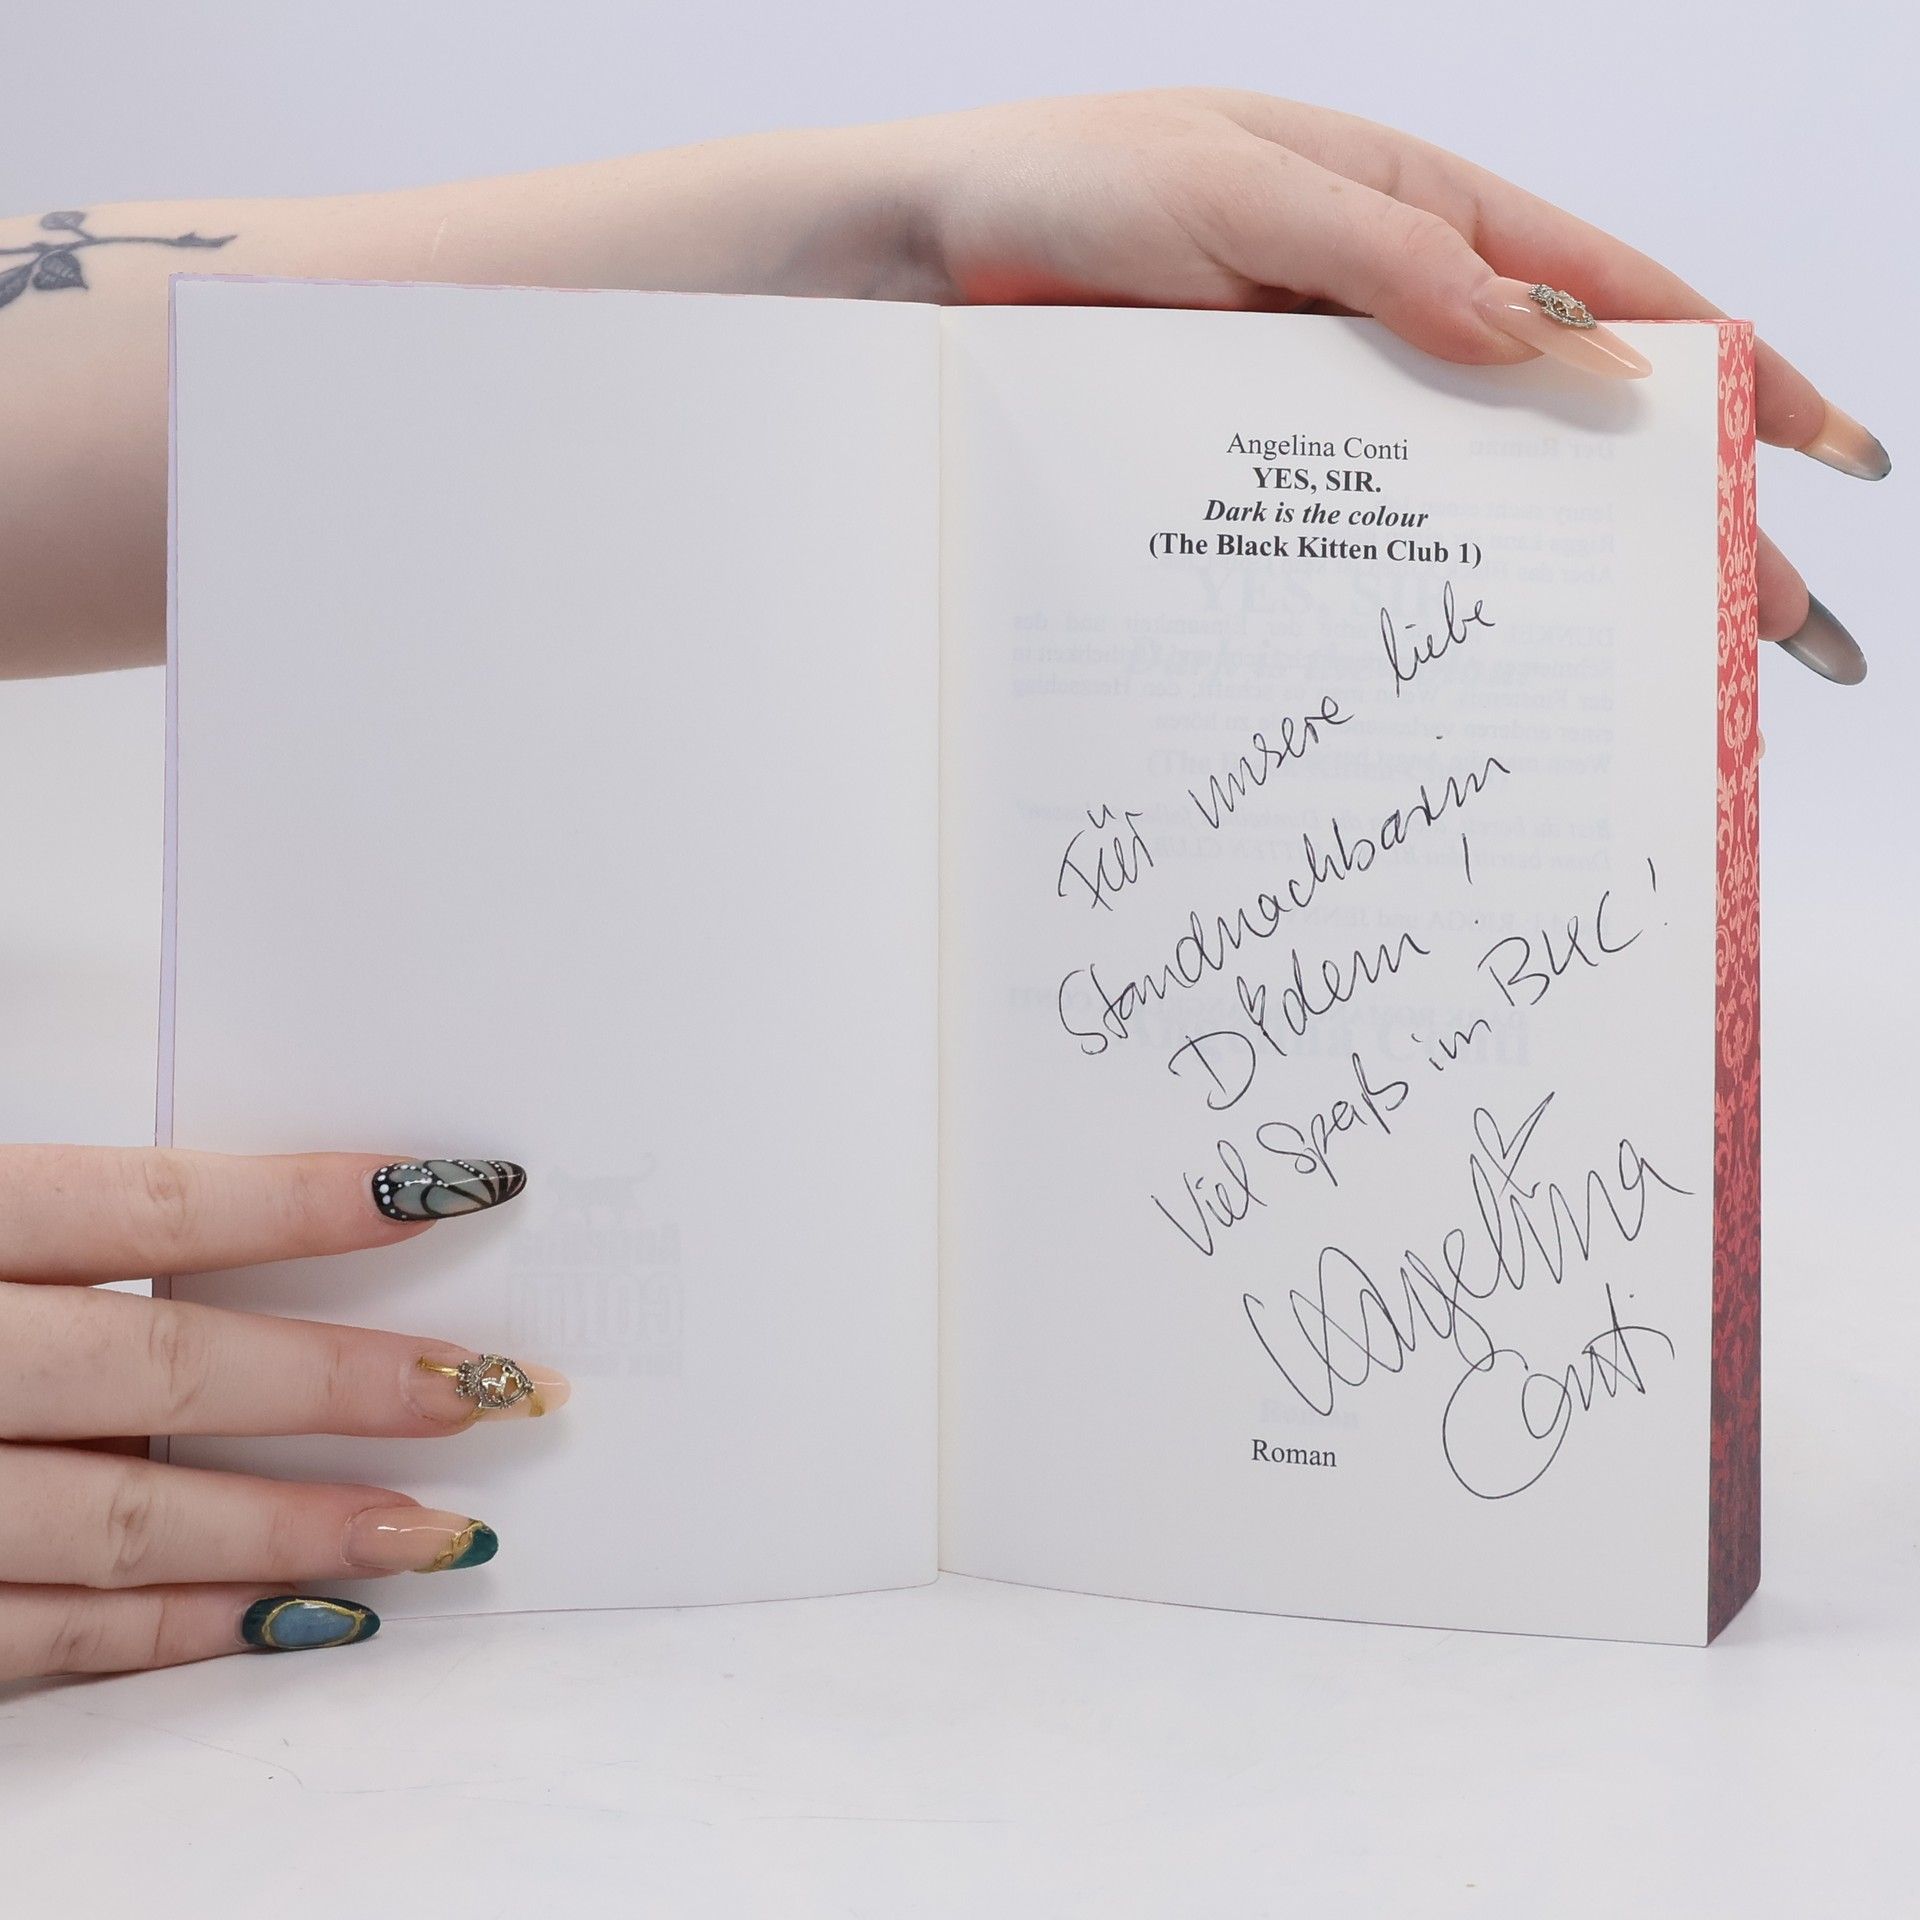 Angelina Conti
YES, SIR.
Dark is the colour
(The Black Kitten Club 1)
Für unsere liebe
Standnachbarin
Didem!
Viel Spaß im BKC!
Angelina
Conti
Roman